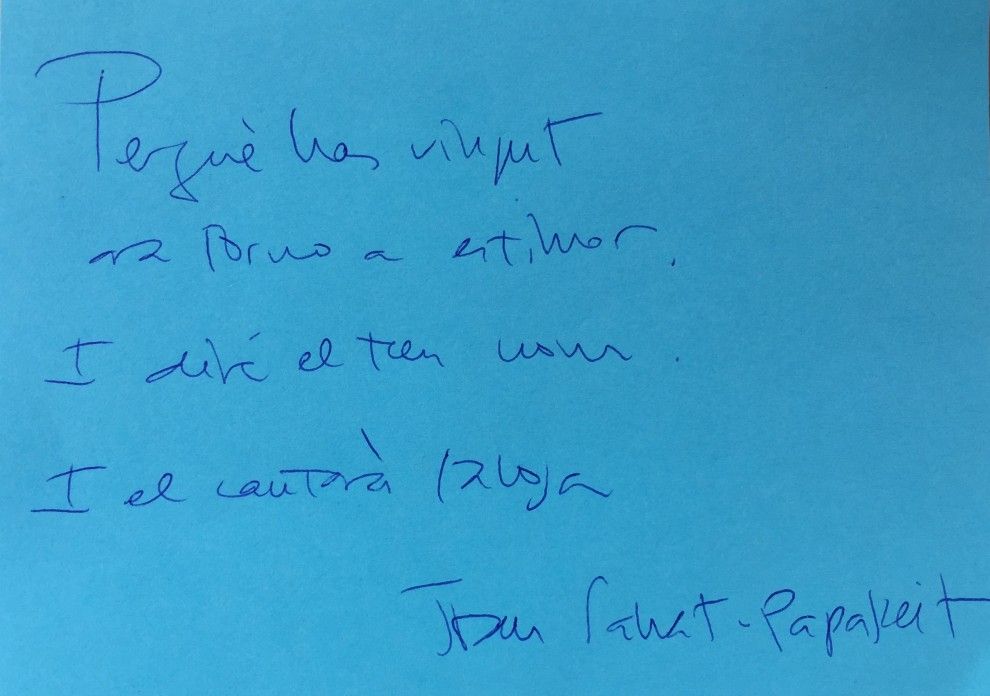 Perquè has vingut
ara torno a estimar.
I diré el teu nom.
I el cantarà l'alosa
Joan Salvat-Papasseit